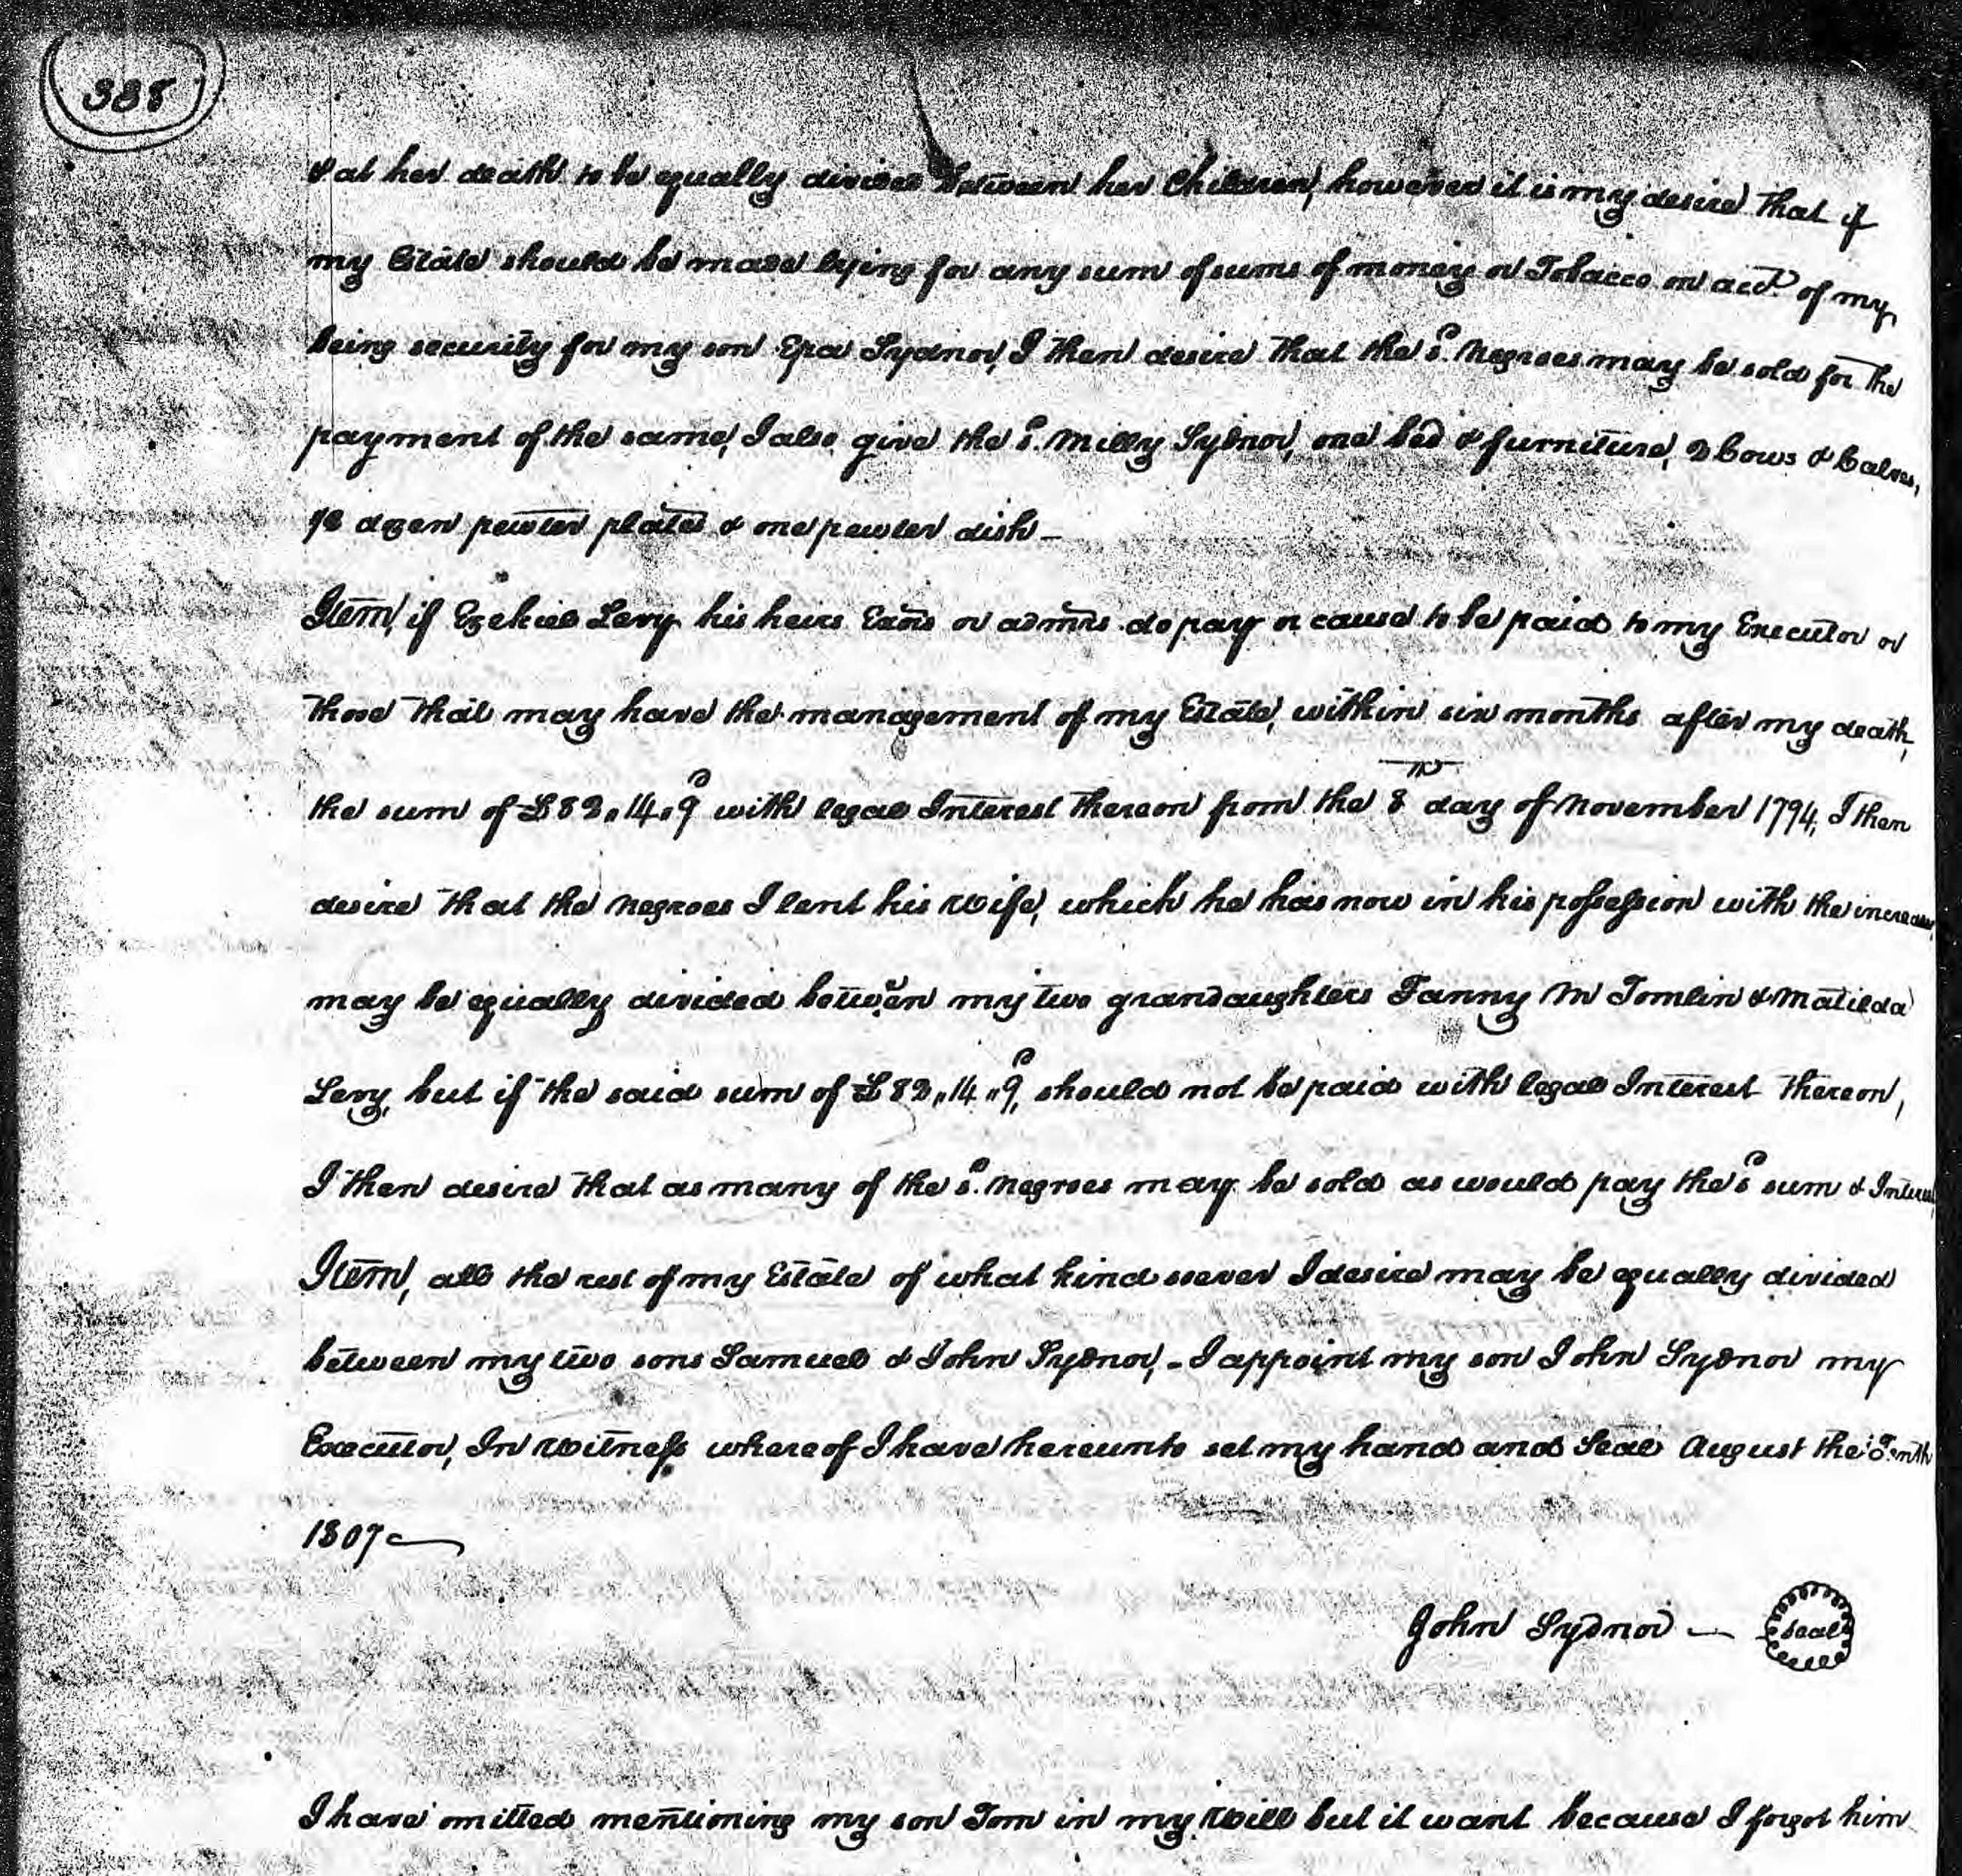 338
& at her death to be equally divided between her Children, however it is my desire that if
my Estate should be made lying for any sum of sums of money or Tobacco on acct. of my
being security for my son Epa Sydnor, I then desire that the sd. Negroes may be sold for the
payment of the same, I also give the sd. Milly Sydnor, one bed & furniture, 2 Cows & Calves,
½ dozen pewter plates & one pewter dish –
Item, if Ezekiel Levy his heirs Exōrs or admrs do pay or cause to be paid to my Executor or
those that may have the management of my Estate, within six months after my death,
the sum of £82,,14,,9 with legal Interest thereon from the 8th day of November 1794, I then
desire that the Negroes I lent his Wife, which he has now in his possession with the increase,
may be equally divided between my two grandaughters Fanny M Tomlin & Matilda
Levy, but if the said sum of £82,,14,,9, should not be paid with legal Interest thereon,
I then desire that as many of the sd. Negroes may be sold as would pay the sd sum & Interest
Item, all the rest of my Estate of what kind soever I desire may be equally divided
between my two sons Samuel & John Sydnor, – I appoint my son John Sydnor my
Executor, In Witness whereof I have hereunto set my hand and Seal August the Tenth
1807
John Sydnor — seal
I have omitted mentioning my son Tom in my Will but it want because I forgot him